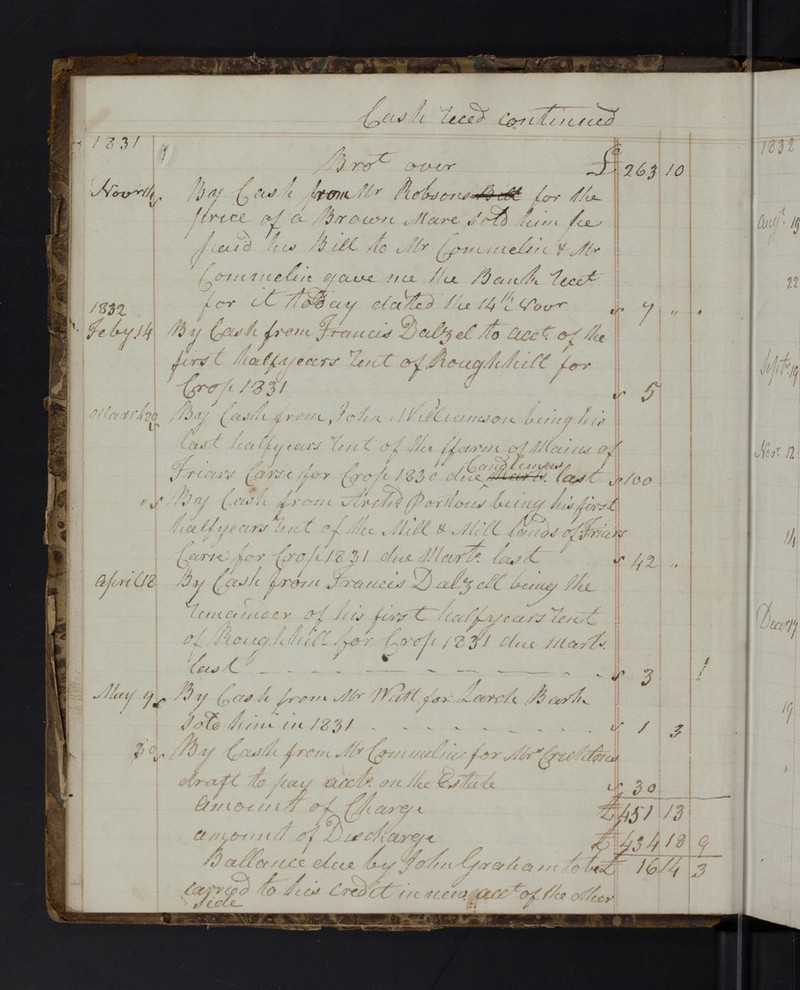 Cash reced continued
1831
Brot over £ 263 10
Novr 14 By Cash from Mr Robsons Bill for the
price of a Brown Mare sold him he
paid his Bill to Mr Commelin & Mr
Commelin gave me the Bank rect
for it to Day dated the 14th Novr 7 "
1832
Feby 14 By Cash from Francis Dalzel to acct of the
first halfyears rent of Roughhill for
Crop 1831 5
March 29 By Cash from John Williamson being his
last halfyears rent of the ffarm of Mains of
Candlemas
Friars Carse for Crop 1830 due Marts last 100
" By Cash from Archd Portious being his first
halfyears rent of the Mill & Mill lands of Friars
Carse for Crop 1831 due Marts last 42 "
April 18 By Cash from Francis Dalzell being the
remainder of his first halfyears rent
of Roughhill for Crop 1831 due Marts
last 3
May 9 By Cash from Mr Watt for Larch Bark
sold him in 1831 1 3
30 By Cash from Mr Commelin for Mrs Crichtons
draft to pay accts on the Estate 30
amount of Charge £ 451 13
amount of Discharge £ 434 18 9
Ballance due by John Graham to be £ 16 14 3
carried to his credit in new acct of the other
side
1832
augt 19
22
Septr 19
Novr 12
14
Decer 17
19